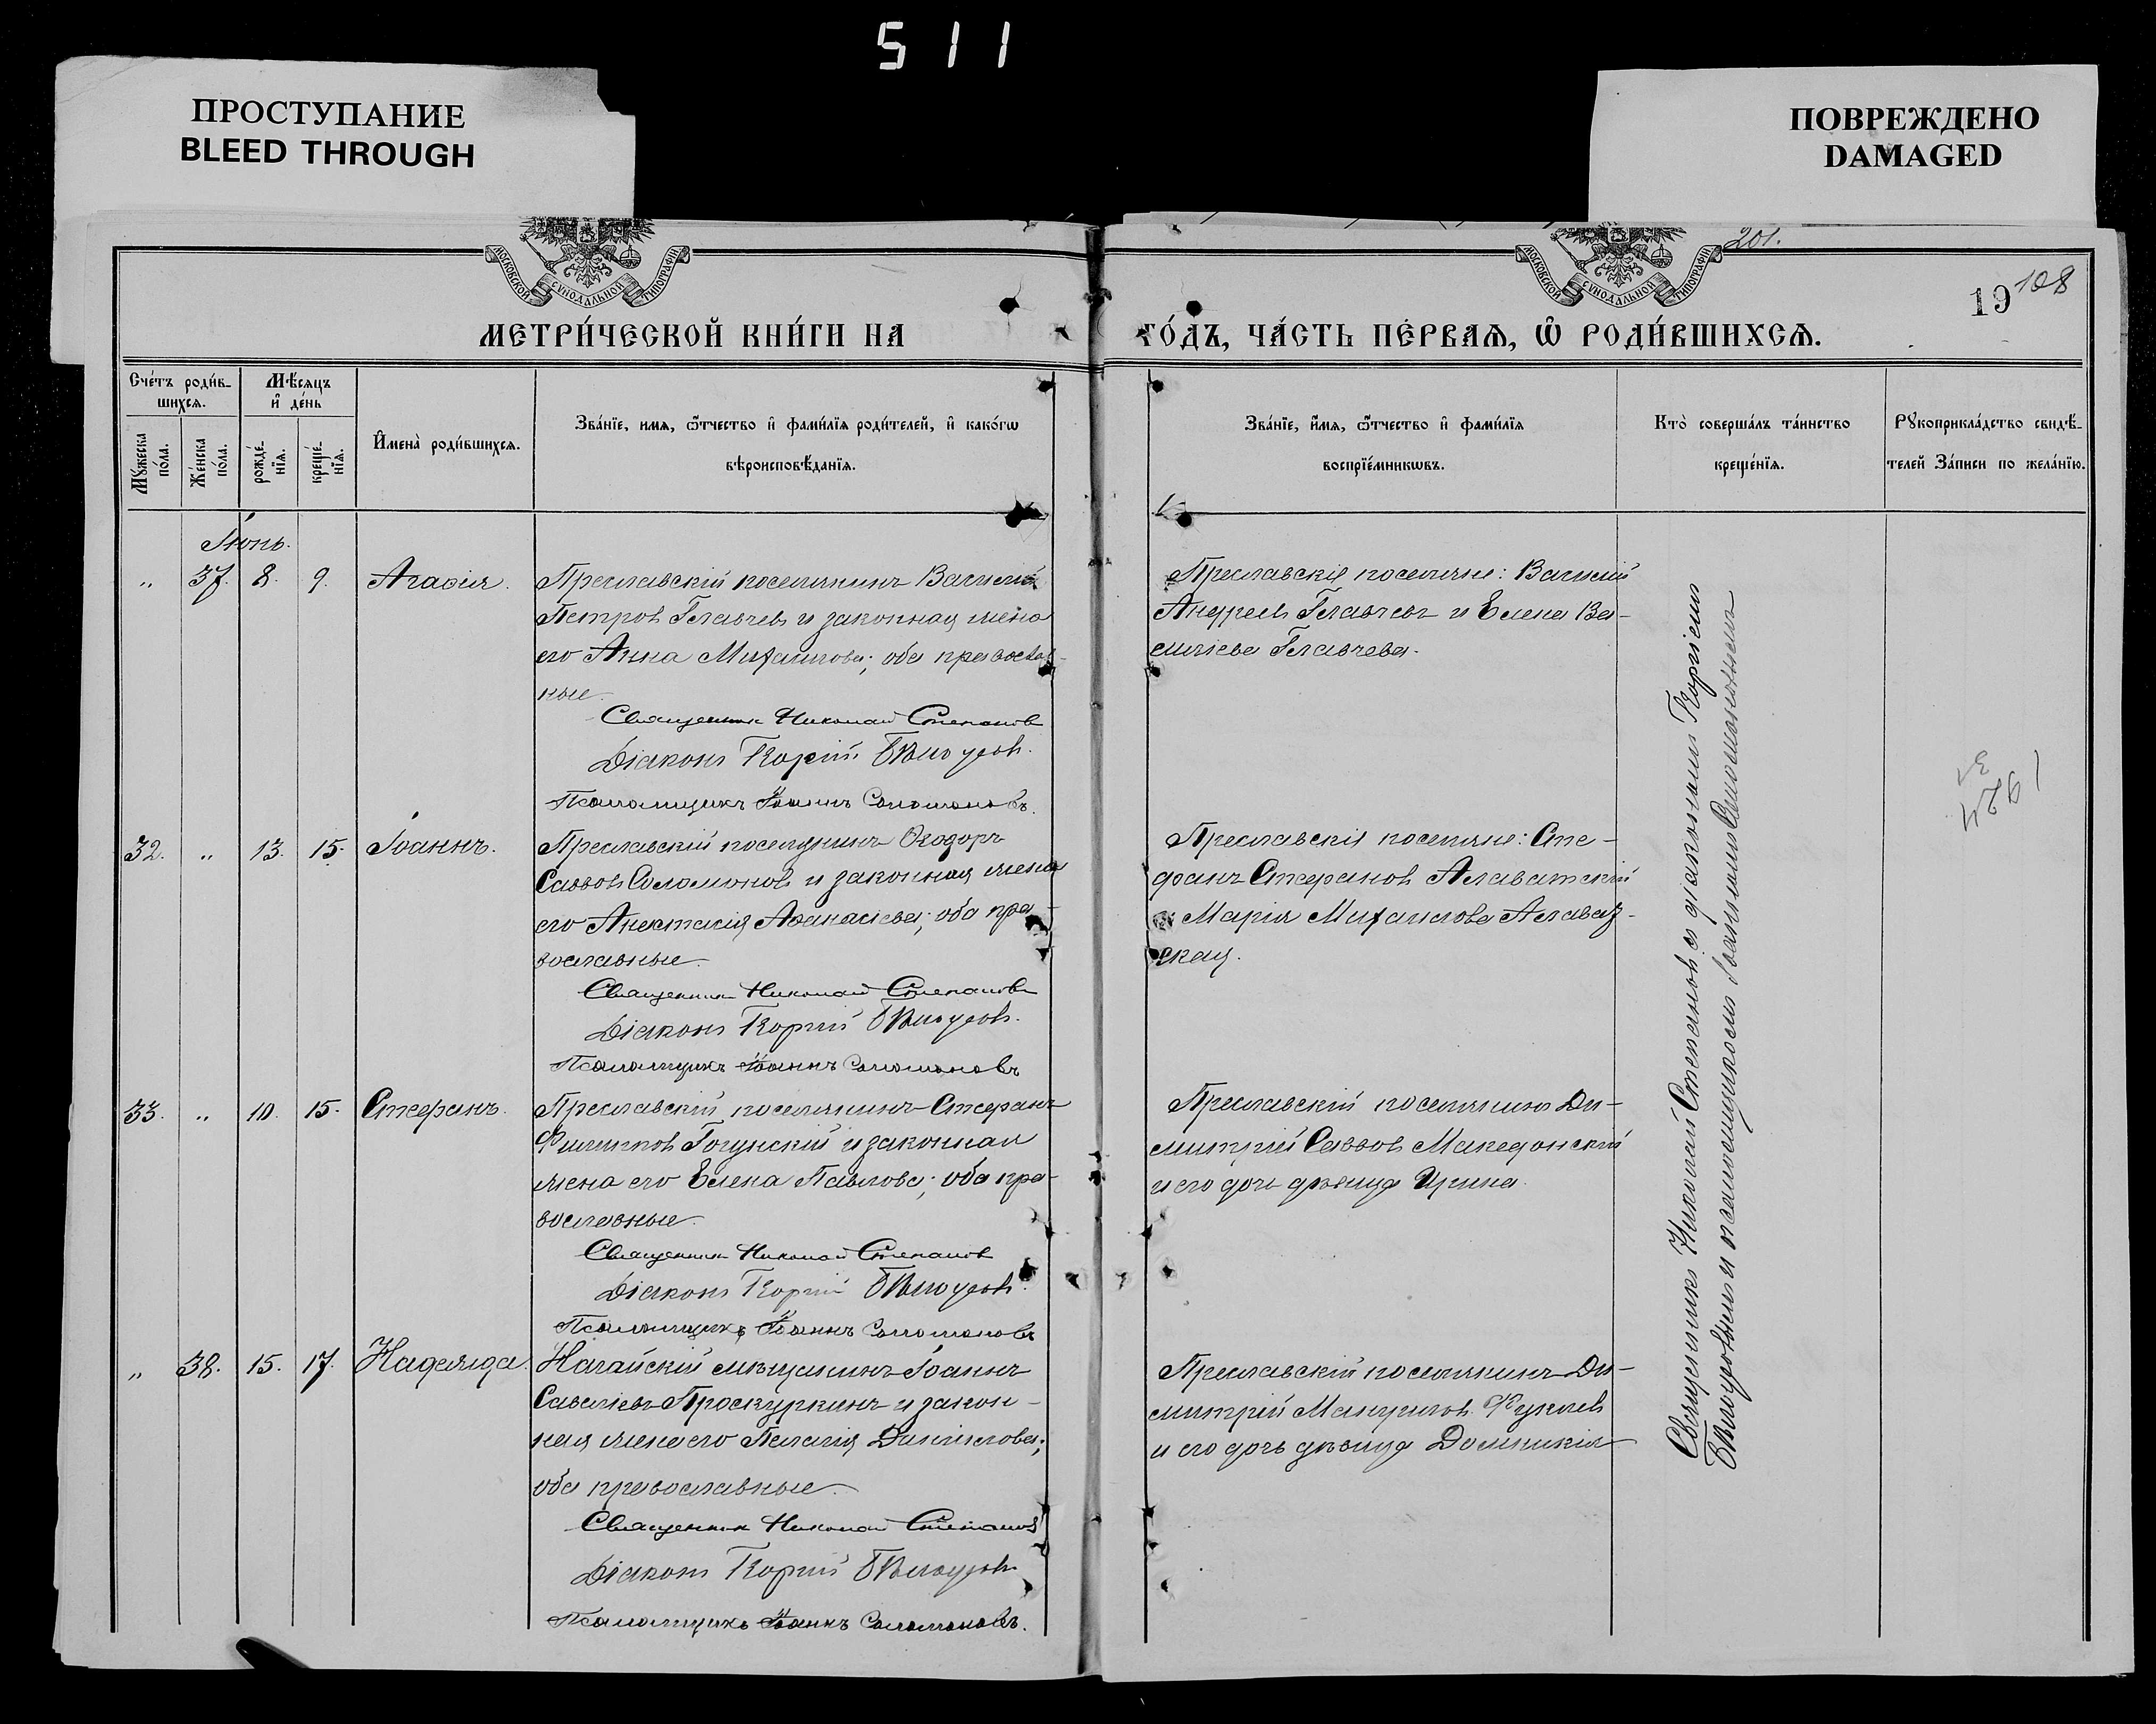 511
ПРОСТУПАНИЕ
BLEED THROUGH
ПОВРЕЖДЕНО
DAMAGED
МОСКОВСКОЙ СѴНОДАЛЬНОЙ ТИПОГРАФІИ
МОСКОВСКОЙ СѴНОДАЛЬНОЙ ТИПОГРАФІИ
201.
19
108
МЕТРИ́ЧЕСКОЙ КНИ́ГИ НА
ГО́ДЪ, ЧА́СТЬ ПЕ́РВАѦ, Ѡ҆ РОДИ́ВШИХСѦ.
Сче́тъ роди́в-
шихсѧ.
Мѣ́сѧцъ
и҆ де́нь
Мꙋ́жеска по́ла.
Же́нска по́ла.
рожде́-
нїѧ.
креще́-
нїѧ.
И҆мена̀ роди́вшихсѧ.
Зва́нїе, имѧ, ѻ҆́тчество и҆ фами́лїѧ роди́телей, и҆ како́гѡ
вѣроисповѣ́данїѧ.
Зва́нїе, и҆́мѧ, ѻ҆́тчество и҆ фами́лїѧ
воспрїе́мникѡвъ.
Кто̀ соверша́лъ та́инство
креще́нїѧ.
Рꙋкоприкла́дство свидѣ́-
телей За́писи по жела́нїю.
Іюнь.
„ 37. 8. 9. Агаѳія.
Преславскій поселянинъ Василій
Петровъ Главчевъ и законная жена
его Анна Михаилова; оба православ-
ные.
Священникъ Николай Степановъ
Діаконъ Георгій Бѣлоусовъ.
Псаломщикъ Іоаннъ Соломоновъ.
Преславскіе поселяне: Василій
Андреевъ Главчевъ и Елена Ва-
сильева Главчева.
32. „ 13. 15. Іоаннъ.
Преславскій поселянинъ Ѳеодоръ
Саввовъ Соломоновъ и законная жена
его Анастасія Аѳанасіева; оба пра-
вославные.
Священникъ Николай Степановъ
Діаконъ Георгій Бѣлоусовъ.
Псаломщикъ Іоаннъ Соломоновъ
Преславскіе поселяне: Сте-
фанъ Стефановъ Алаватскій
и Марія Михаилова Алават-
ская.
33. „ 10. 15. Стефанъ.
Преславскій поселянинъ Стефанъ
Филипповъ Гогунскій и законная
жена его Елена Павлова; оба пра-
вославные.
Священникъ Николай Степановъ
Діаконъ Георгій Бѣлоусовъ.
Псаломщикъ Іоаннъ Соломоновъ
Преславскій поселянинъ Ди-
митрій Саввовъ Македонскій
и его дочь дѣвица Ирина.
„ 38. 15. 17. Надежда.
Ногайскій мѣщанинъ Іоаннъ
Савельевъ Проскуркинъ и закон-
ная жена его Пелагія Даніилова;
оба православные.
Священникъ Николай Степановъ
Діаконъ Георгій Бѣлоусовъ
Псаломщикъ Іоаннъ Соломоновъ.
Преславскій поселянинъ Ди-
митрій
и его дочь дѣвица Домникія
Священникъ Николай Степановъ съ діакономъ Георгіемъ
Бѣлоусовымъ и псаломщикомъ Іоанномъ Соломоновымъ